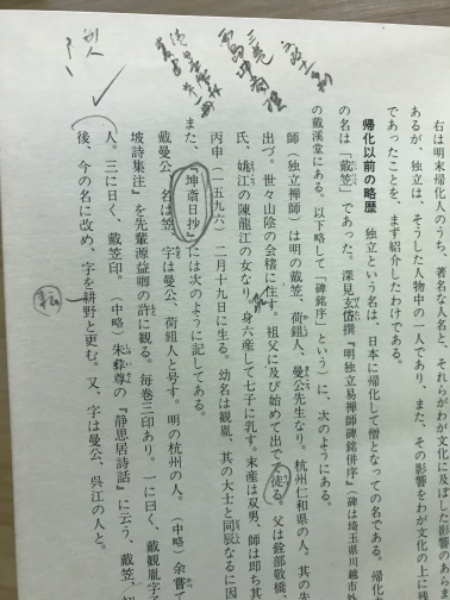 右は明末帰化人のうち、著名な人名と、それらがわが文化に及ぼした影響のあらま
あるが、独立は、そうした人物中の一人であり、また、その影響をわが文化の上に残
であったことを、まず紹介したわけである。
帰化以前の略歴 独立という名は、日本に帰化して僧となっての名である。帰化
の名は「戴笠」であった。深見玄岱撰『明独立易禅師碑銘併序』(碑は埼玉県川越市外
の戴溪堂にある。以下略して「碑銘序」という)に、次のようにある。
師(独立禅師)は明の戴笠、荷鉏人、曼公先生なり。杭州仁和県の人。其の先
出づ。世々山陰の会稽に住す。祖父に及び始めて出でて徙る。父は銓部敬橋、
氏、姚江の陳龍江の女なり。身六産して七子に乳す。末産は双男、師は即ち其
丙申(一五九六)二月十九日に生る。幼名は観胤、其の大士と同辰なるに因
また、『坤斎日抄』には次のように記してある。
戴曼公、名は笠、字は曼公、荷鉏人と号す。明の杭州の人。(中略)余嘗て
坡詩集注』を先輩源益卿の許に観る。毎巻三印あり。一に曰く、戴観胤字子
人。三に曰く、戴笠印。(中略)朱彝尊の『静思居詩話』に云う、戴笠、初
後、今の名に改め、字を耕野と更む。又、字は曼公、呉江の人と。
別人